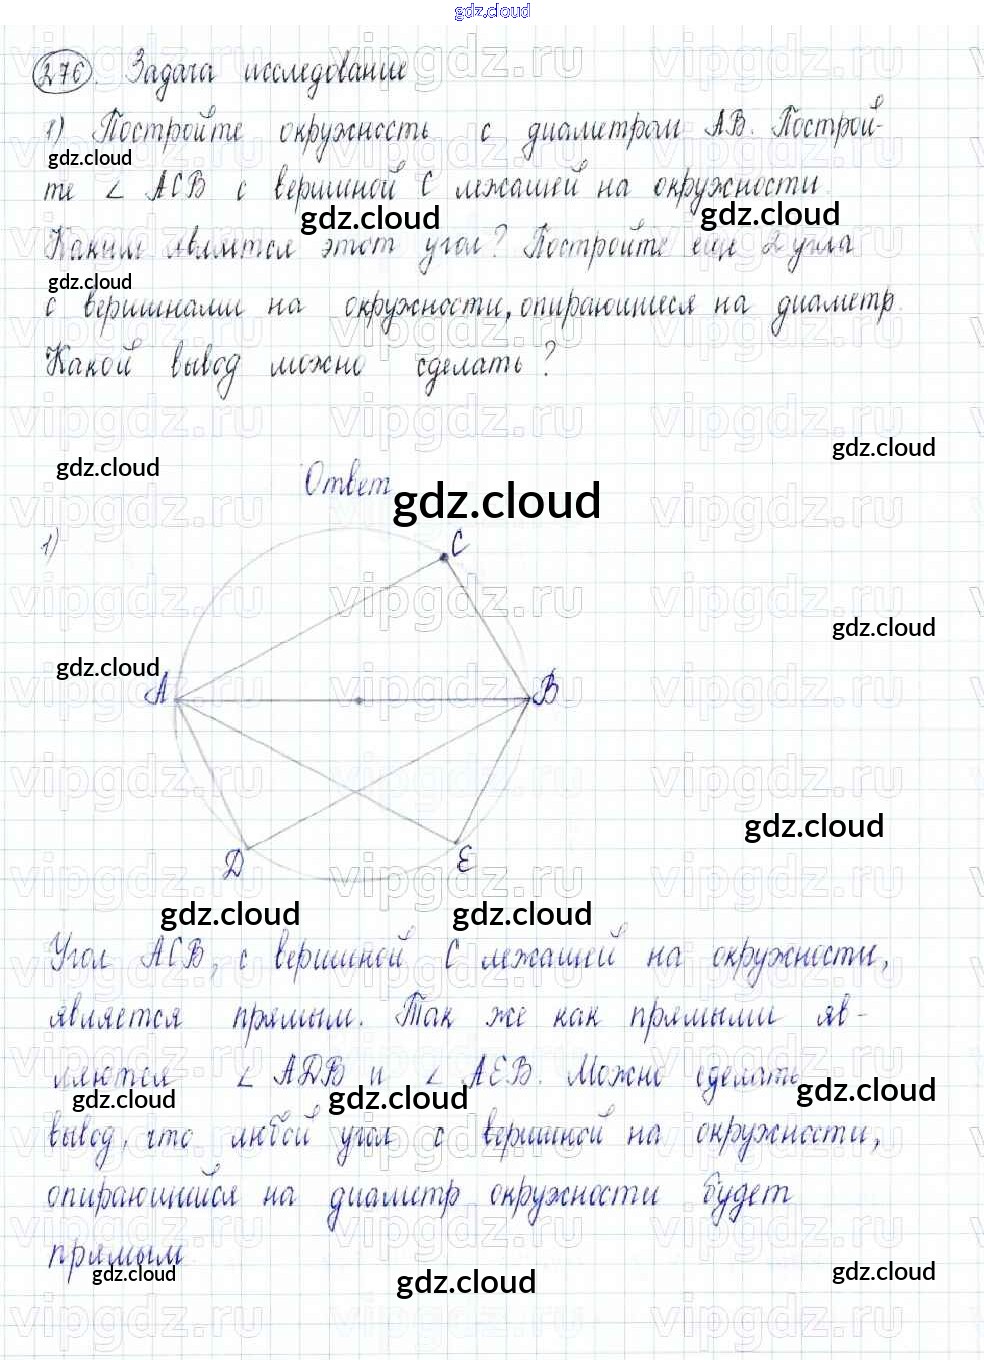 gdz.cloud
276. Задача исследование
1) Постройте окружность с диаметром АВ. Построй-
gdz.cloud
те ∠ АСВ с вершиной С лежашей на окружности.
gdz.cloud gdz.cloud
Каким является этот угол? Постройте еще 2 угла
gdz.cloud
с вершинами на окружности, опирающиеся на диаметр.
Какой вывод можно сделать?
vipgdz.ru vipgdz.ru vipgdz.ru
gdz.cloud
gdz.cloud
Ответ
gdz.cloud
1)
C
gdz.cloud
gdz.cloud
A B
gdz.cloud
D E
gdz.cloud gdz.cloud
Угол АСВ, с вершиной С лежашей на окружности,
является прямым. Так же как прямыми яв-
ляются ∠ ADB и ∠ AEB. Можно сделать
gdz.cloud gdz.cloud gdz.cloud
вывод, что любой угол с вершиной на окружности,
опирающийся на диаметр окружности будет
прямым
gdz.cloud gdz.cloud gdz.cloud